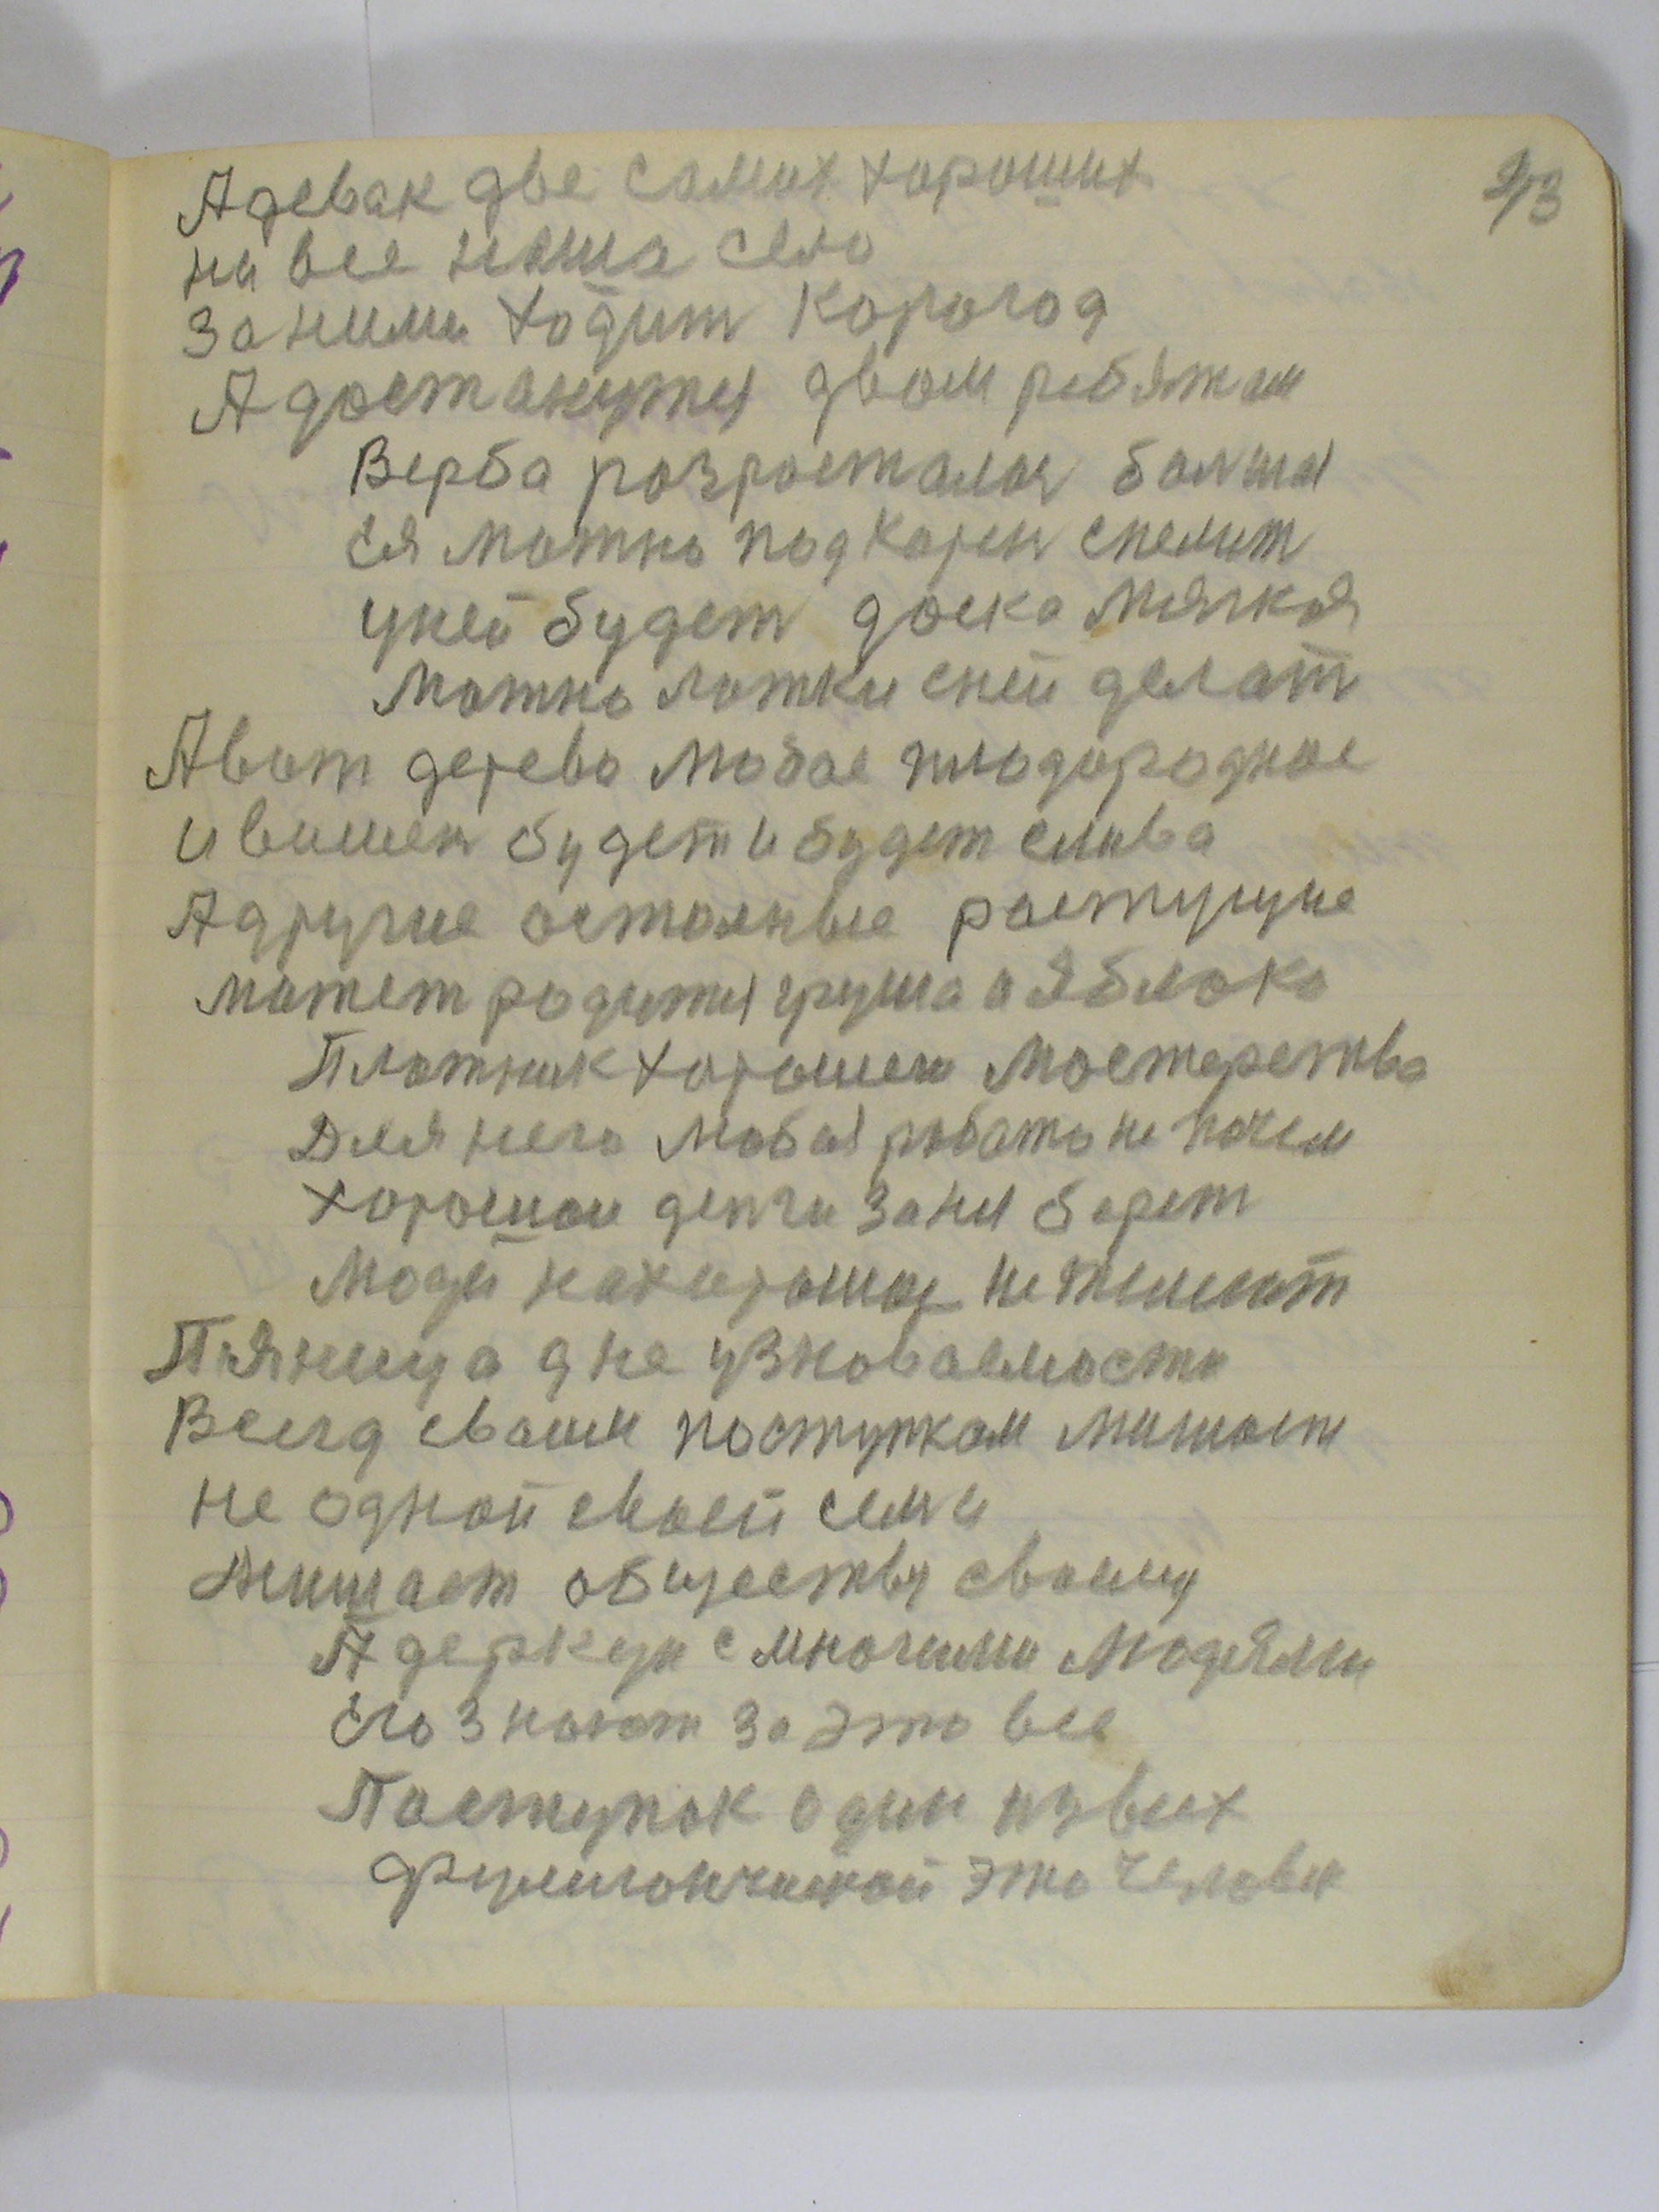 213
А девак две самых хароших
на все наша село
за ними ходит карагод
А достанутся двом ребятам
Верба розросталая болшая
Ея можно под карен спелит
у ней будет доска мягкая
можно ложки с ней делат
А вот дерево любое плодородное
и вишен будет и будет слива
А другие осталные растущие
может родится груша и яблоко
Плотник харошего мастерства
Для него любая работа не почем
хорошои денги за ня берет
Люди на харошия не жилеют
Пяница д не узноваемости
Всегд своим поступкам мишает
не одной своей семи
Мишает обществу своему
А держун с многими людями
Его знают за это все
Поступок один из всех
Фулиганчистой это человек